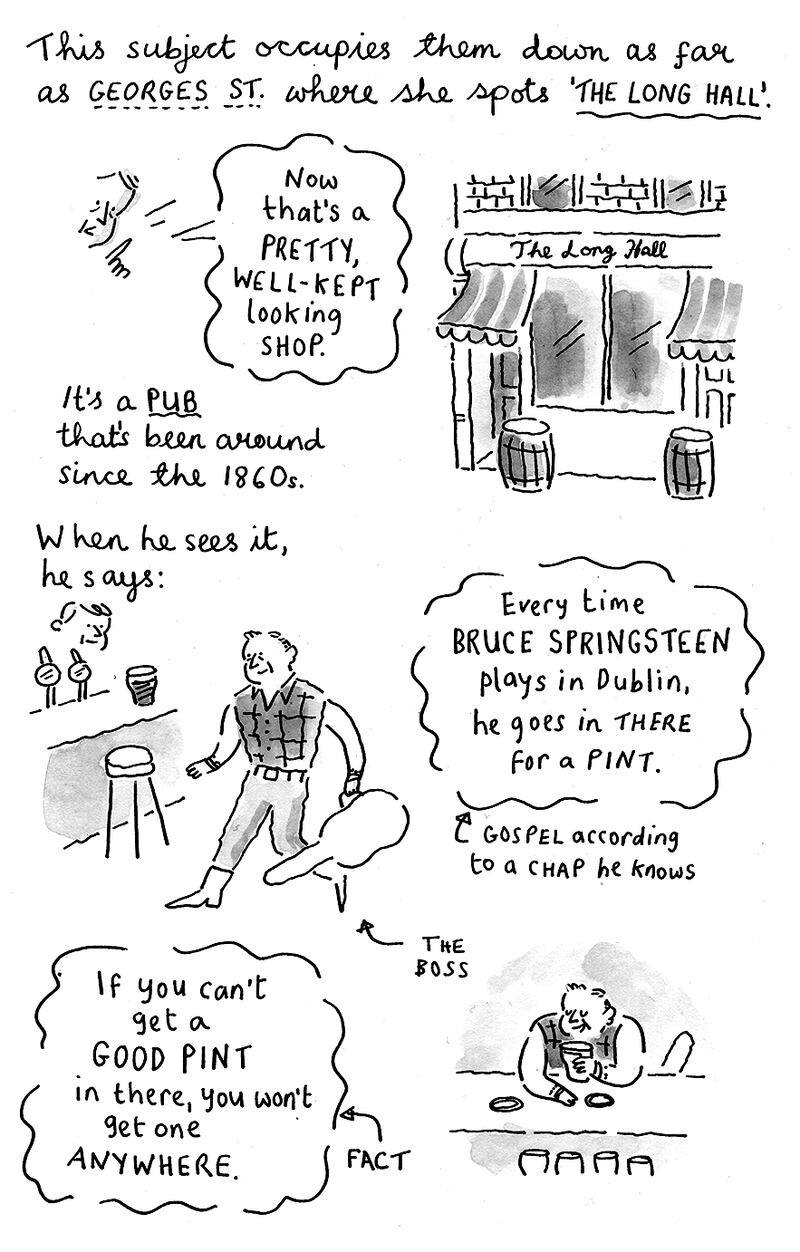 This subject occupies them down as far
as GEORGES ST. where she spots 'THE LONG HALL'.
Now
that's a
PRETTY,
WELL-KEPT
looking
SHOP.
The Long Hall
It's a PUB
that's been around
since the 1860s.
When he sees it,
he says:
Every time
BRUCE SPRINGSTEEN
plays in Dublin,
he goes in THERE
for a PINT.
GOSPEL according
to a CHAP he knows
THE
BOSS
If you can't
get a
GOOD PINT
in there, you won't
get one
ANYWHERE.
FACT